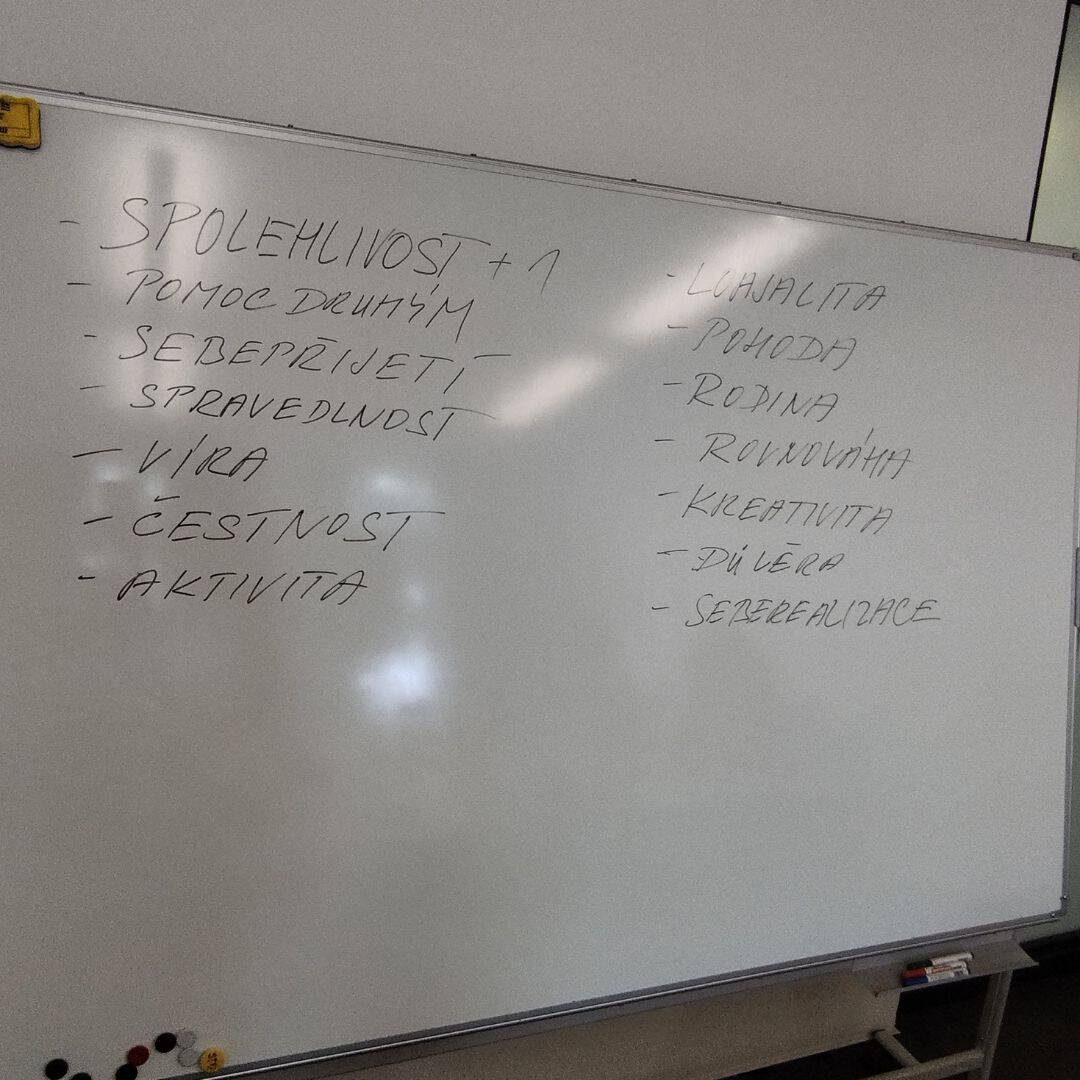 - SPOLEHLIVOST + 1
- POMOC DRUHÝM
- SEBEPŘIJETÍ
- SPRAVEDLNOST
- VÍRA
- ČESTNOST
- AKTIVITA
- LOAJALITA
- POHODA
- RODINA
- ROVNOVÁHA
- KREATIVITA
- DŮVĚRA
- SEBEREALIZACE